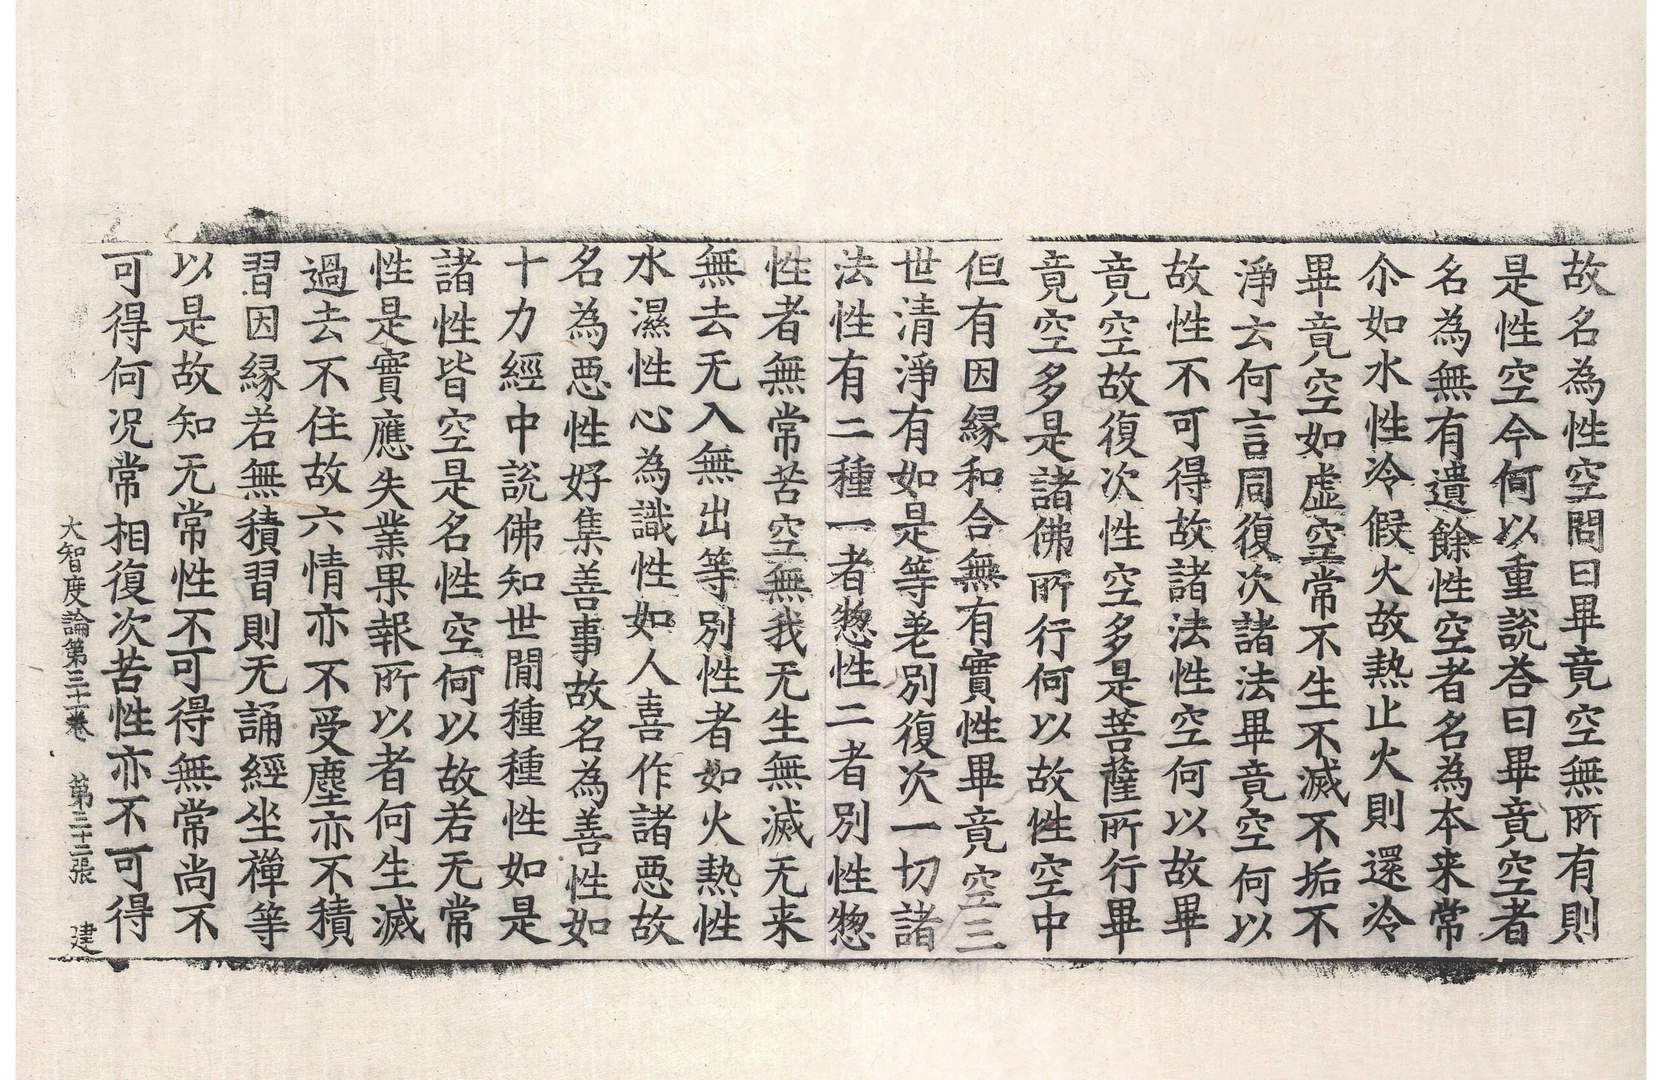 故名為性空問曰畢竟空無所有則
是性空今何以重說荅曰畢竟空者
名為無有遺餘性空者名為本来常
尒如水性冷假火故熱止火則還冷
畢竟空如虛空常不生不滅不垢不
淨云何言同復次諸法畢竟空何以
故性不可得故諸法性空何以故畢
竟空故復次性空多是菩薩所行畢
竟空多是諸佛所行何以故性空中
但有因緣和合無有實性畢竟空三
世清淨有如是等差別復次一切諸
法性有二種一者惣性二者別性惣
性者無常苦空無我无生無滅无来
無去无入無出等別性者如火熱性
水濕性心為識性如人喜作諸惡故
名為惡性好集善事故名為善性如
十力經中說佛知世間種種性如是
諸性皆空是名性空何以故若无常
性是實應失業果報所以者何生滅
過去不住故六情亦不受塵亦不積
習因緣若無積習則无誦經坐禪等
以是故知无常性不可得無常尚不
可得何况常相復次苦性亦不可得
大智度論第三十一卷　第三十二張　建